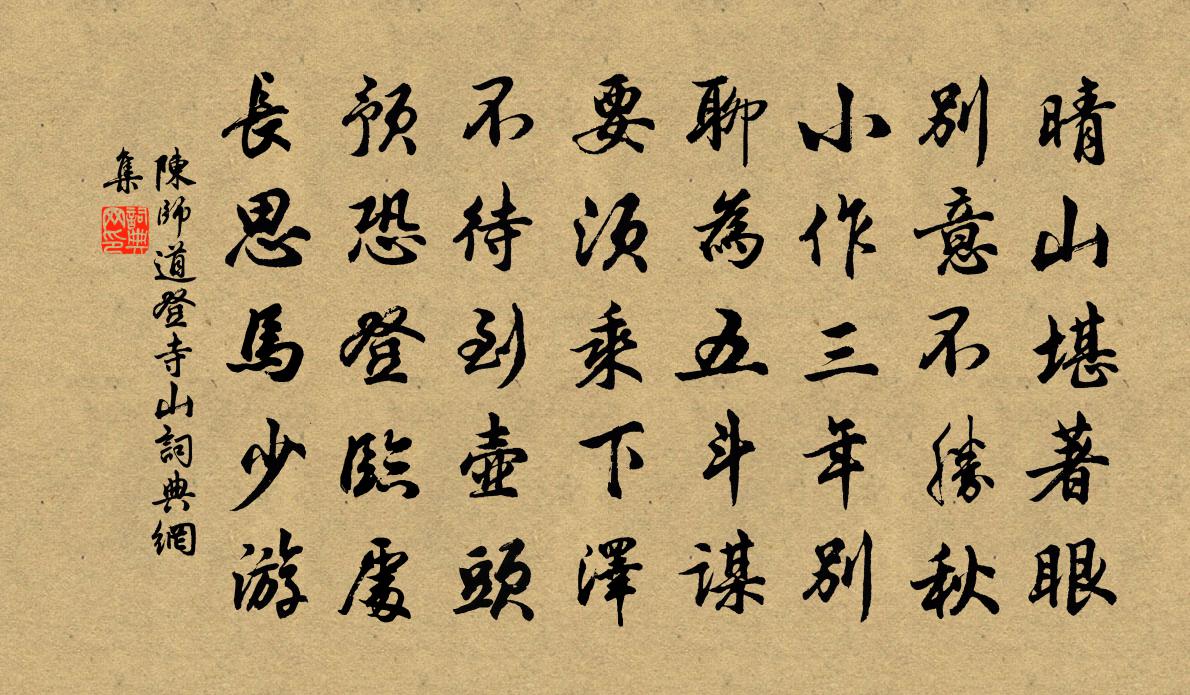 晴山堪著眼
別意不勝秋
小作三年別
聊為五斗謀
要須乘下澤
不待到壺頭
預恐登臨處
長思馬少游
陳師道登寺山詞典網
集
詞典
网印